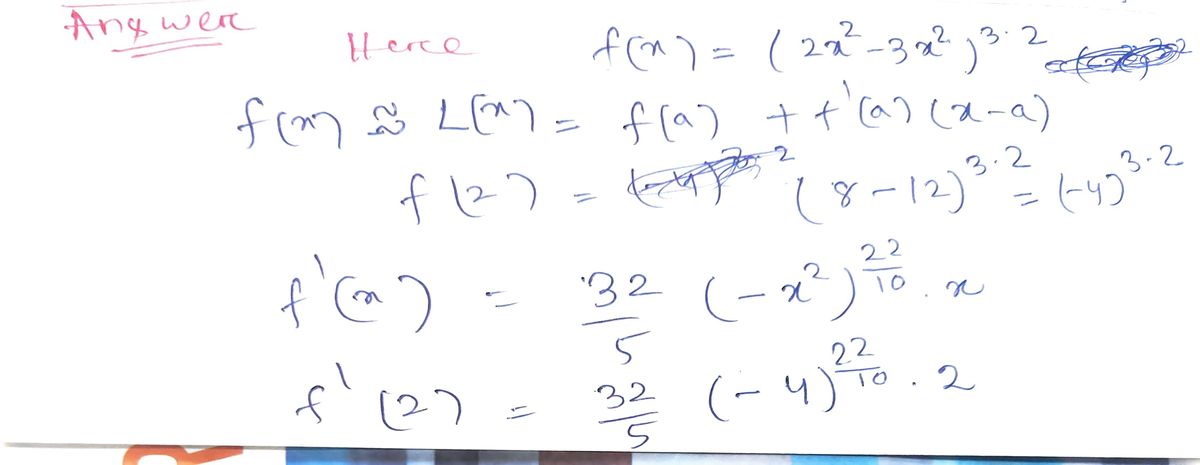 Answere
Here f(x) = (2x²-3x²)^3.2
f(x) ≈ L(x) = f(a) + f'(a) (x-a)
f(2) = (8-12)^3.2 = (-4)^3.2
f'(x) = 32/5 (-x²)^22/10 . x
f'(2) = 32/5 (-4)^22/10 . 2